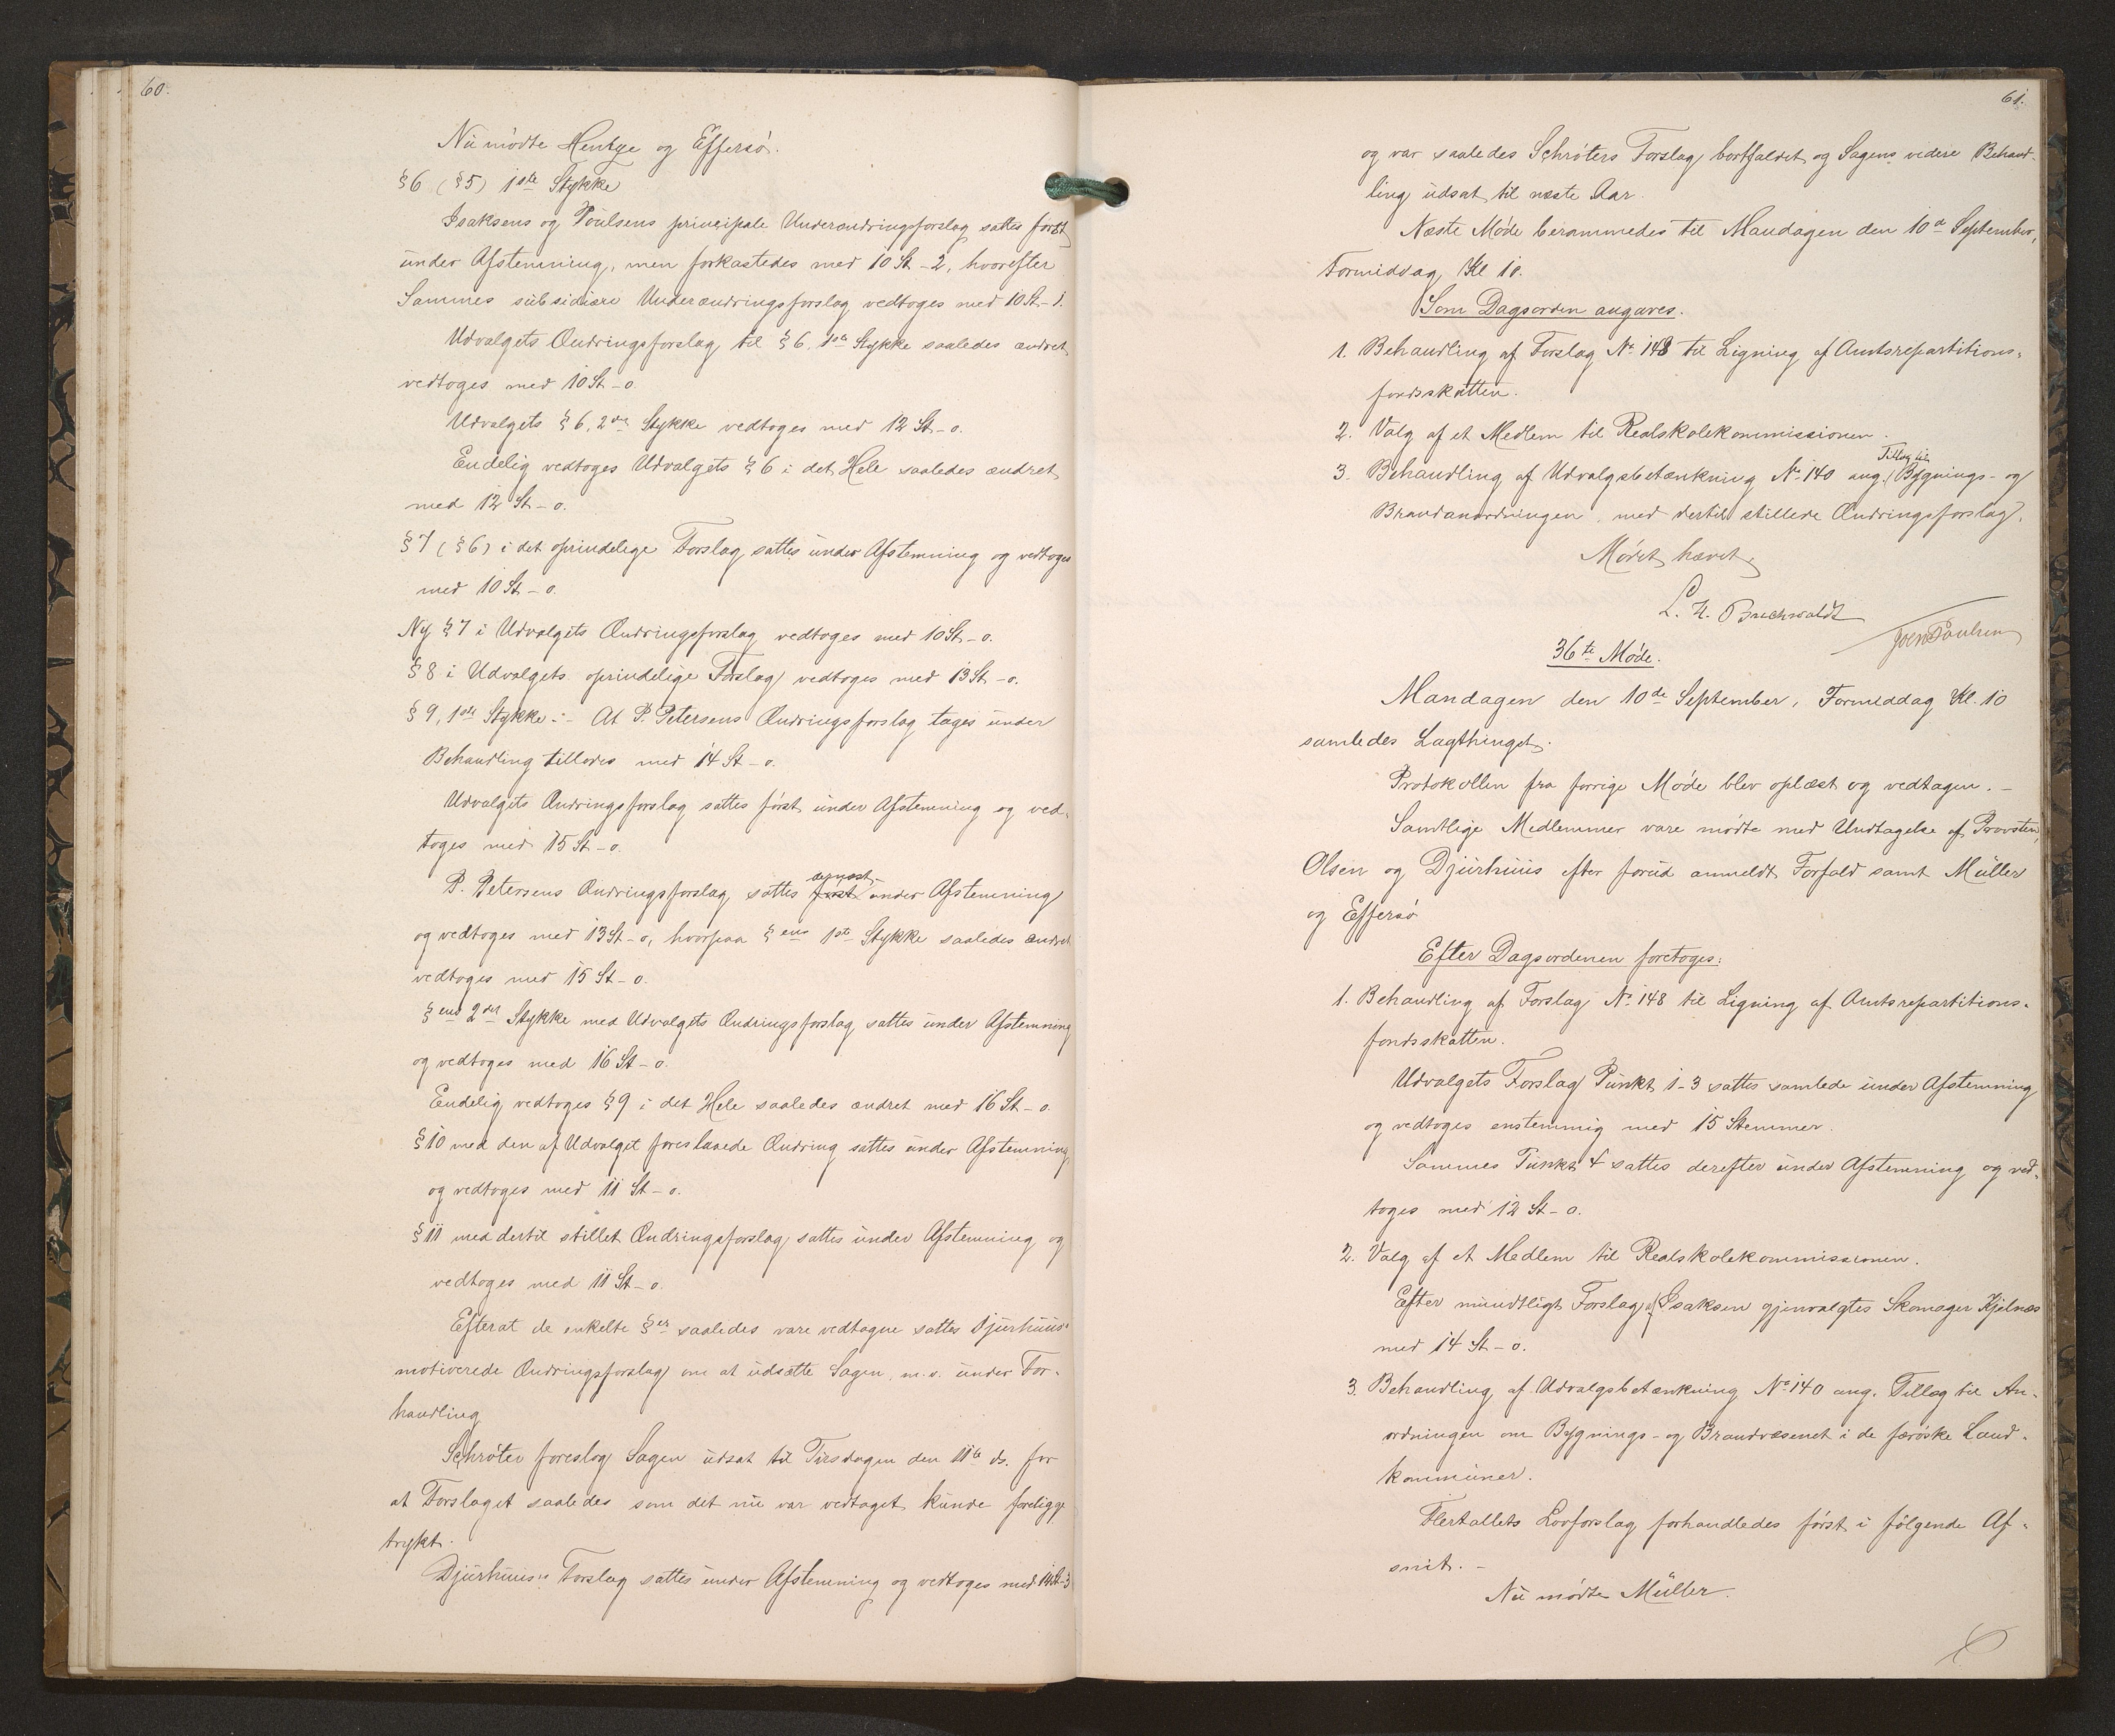 60.
Nu mødte Hentze og Effersø.
§6 (§5) 1ste Stykke
Isaksens og Poulsens principale Underændringsforslag sattes først
under Afstemning, men forkastedes med 10 St - 2, hvorefter
Sammes subsidiære Underændringsforslag vedtoges med 10 St - 1.
Udvalgets Ændringsforslag til §6, 1ste Stykke saaledes ændret
vedtoges med 10 St - 0.
Udvalgets §6, 2det Stykke vedtoges med 12 St - 0.
Endelig vedtoges Udvalgets §6 i det Hele saaledes ændret
med 12 St - 0.
§7 (§6) i det oprindelige Forslag sattes under Afstemning og vedtoges
med 10 St - 0.
Ny §7 i Udvalgets Ændringsforslag vedtoges med 10 St - 0.
§8 i Udvalgets oprindelige Forslag vedtoges med 13 St - 0.
§9, 1ste Stykke :- At P. Petersens Ændringsforslag tages under
Behandling tillodes med 14 St - 0.
Udvalgets Ændringsforslag sattes først under Afstemning og ved-
toges med 15 St - 0.
dernæst
P. Petersens Ændringsforslag sattes først under Afstemning
og vedtoges med 13 St - 0, hvorpaa §ens 1ste Stykke saaledes ændret
vedtoges med 15 St - 0.
§ens 2det Stykke med Udvalgets Ændringsforslag sattes under Afstemning
og vedtoges med 16 St - 0.
Endelig vedtoges §9 i det Hele saaledes ændret med 16 St - 0.
§10 med den af Udvalget foreslaaede Ændring sattes under Afstemning,
og vedtoges med 11 St - 0.
§11 med dertil stillet Ændringsforslag sattes under Afstemning og
vedtoges med 11 St - 0.
Efterat de enkelte §er saaledes vare vedtagne sattes Djurhuus'
motiverede Ændringsforslag om at udsætte Sagen, m.v. under For-
handling
Schrøter foreslog Sagen udsat til Tirsdagen den 11te ds. for
at Forslaget saaledes som det nu var vedtaget kunde foreligge
trykt.
Djurhuus's Forslag sattes under Afstemning og vedtoges med 14 St - 3
61.
og var saaledes Schrøters Forslag bortfaldet og Sagens videre Behand-
ling udsat til næste Aar.
Næste Møde berammedes til Mandagen den 10de September,
Formiddag Kl 10.
Som Dagsorden angaves.
1. Behandling af Forslag No 148 til Ligning af Amtsrepartitions-
fondsskatten.
2. Valg af et Medlem til Realskolekommissionen.
Tillæg til
3. Behandling af Udvalgsbetænkning No 140 ang. Bygnings- og
Brandanordningen, med dertil stillede Ændringsforslag.
Mødet hævet.
L. H. Buchwaldt
Joen Poulsen
36te Møde.
Mandagen den 10de September, Formiddag Kl. 10
samledes Lagthinget.
Protokollen fra forrige Møde blev oplæst og vedtagen. -
Samtlige Medlemmer vare mødte med Undtagelse af Provsten,
Olsen og Djurhuus efter forud anmeldt Forfald samt Müller
og Effersø
Efter Dagsordenen foretoges:
1. Behandling af Forslag No 148 til Ligning af Amtsrepartitions-
fondsskatten.
Udvalgets Forslag Punkt 1-3 sattes samlede under Afstemning
og vedtoges enstemmig med 15 Stemmer.
Sammes Punkt 4 sattes derefter under Afstemning og ved-
toges med 12 St - 0.
2. Valg af et Medlem til Realskolekommissionen.
Efter mundtligt Forslag af Isaksen gjenvalgtes Skomager Kjølnæs
med 14 St - 0.
3. Behandling af Udvalgsbetænkning No 140 ang. Tillæg til An-
ordningen om Bygnings- og Brandvæsenet i de færøske Land-
kommuner.
Flertallets Lovforslag forhandledes først i følgende Af-
snit. -
Nu mødte Müller.